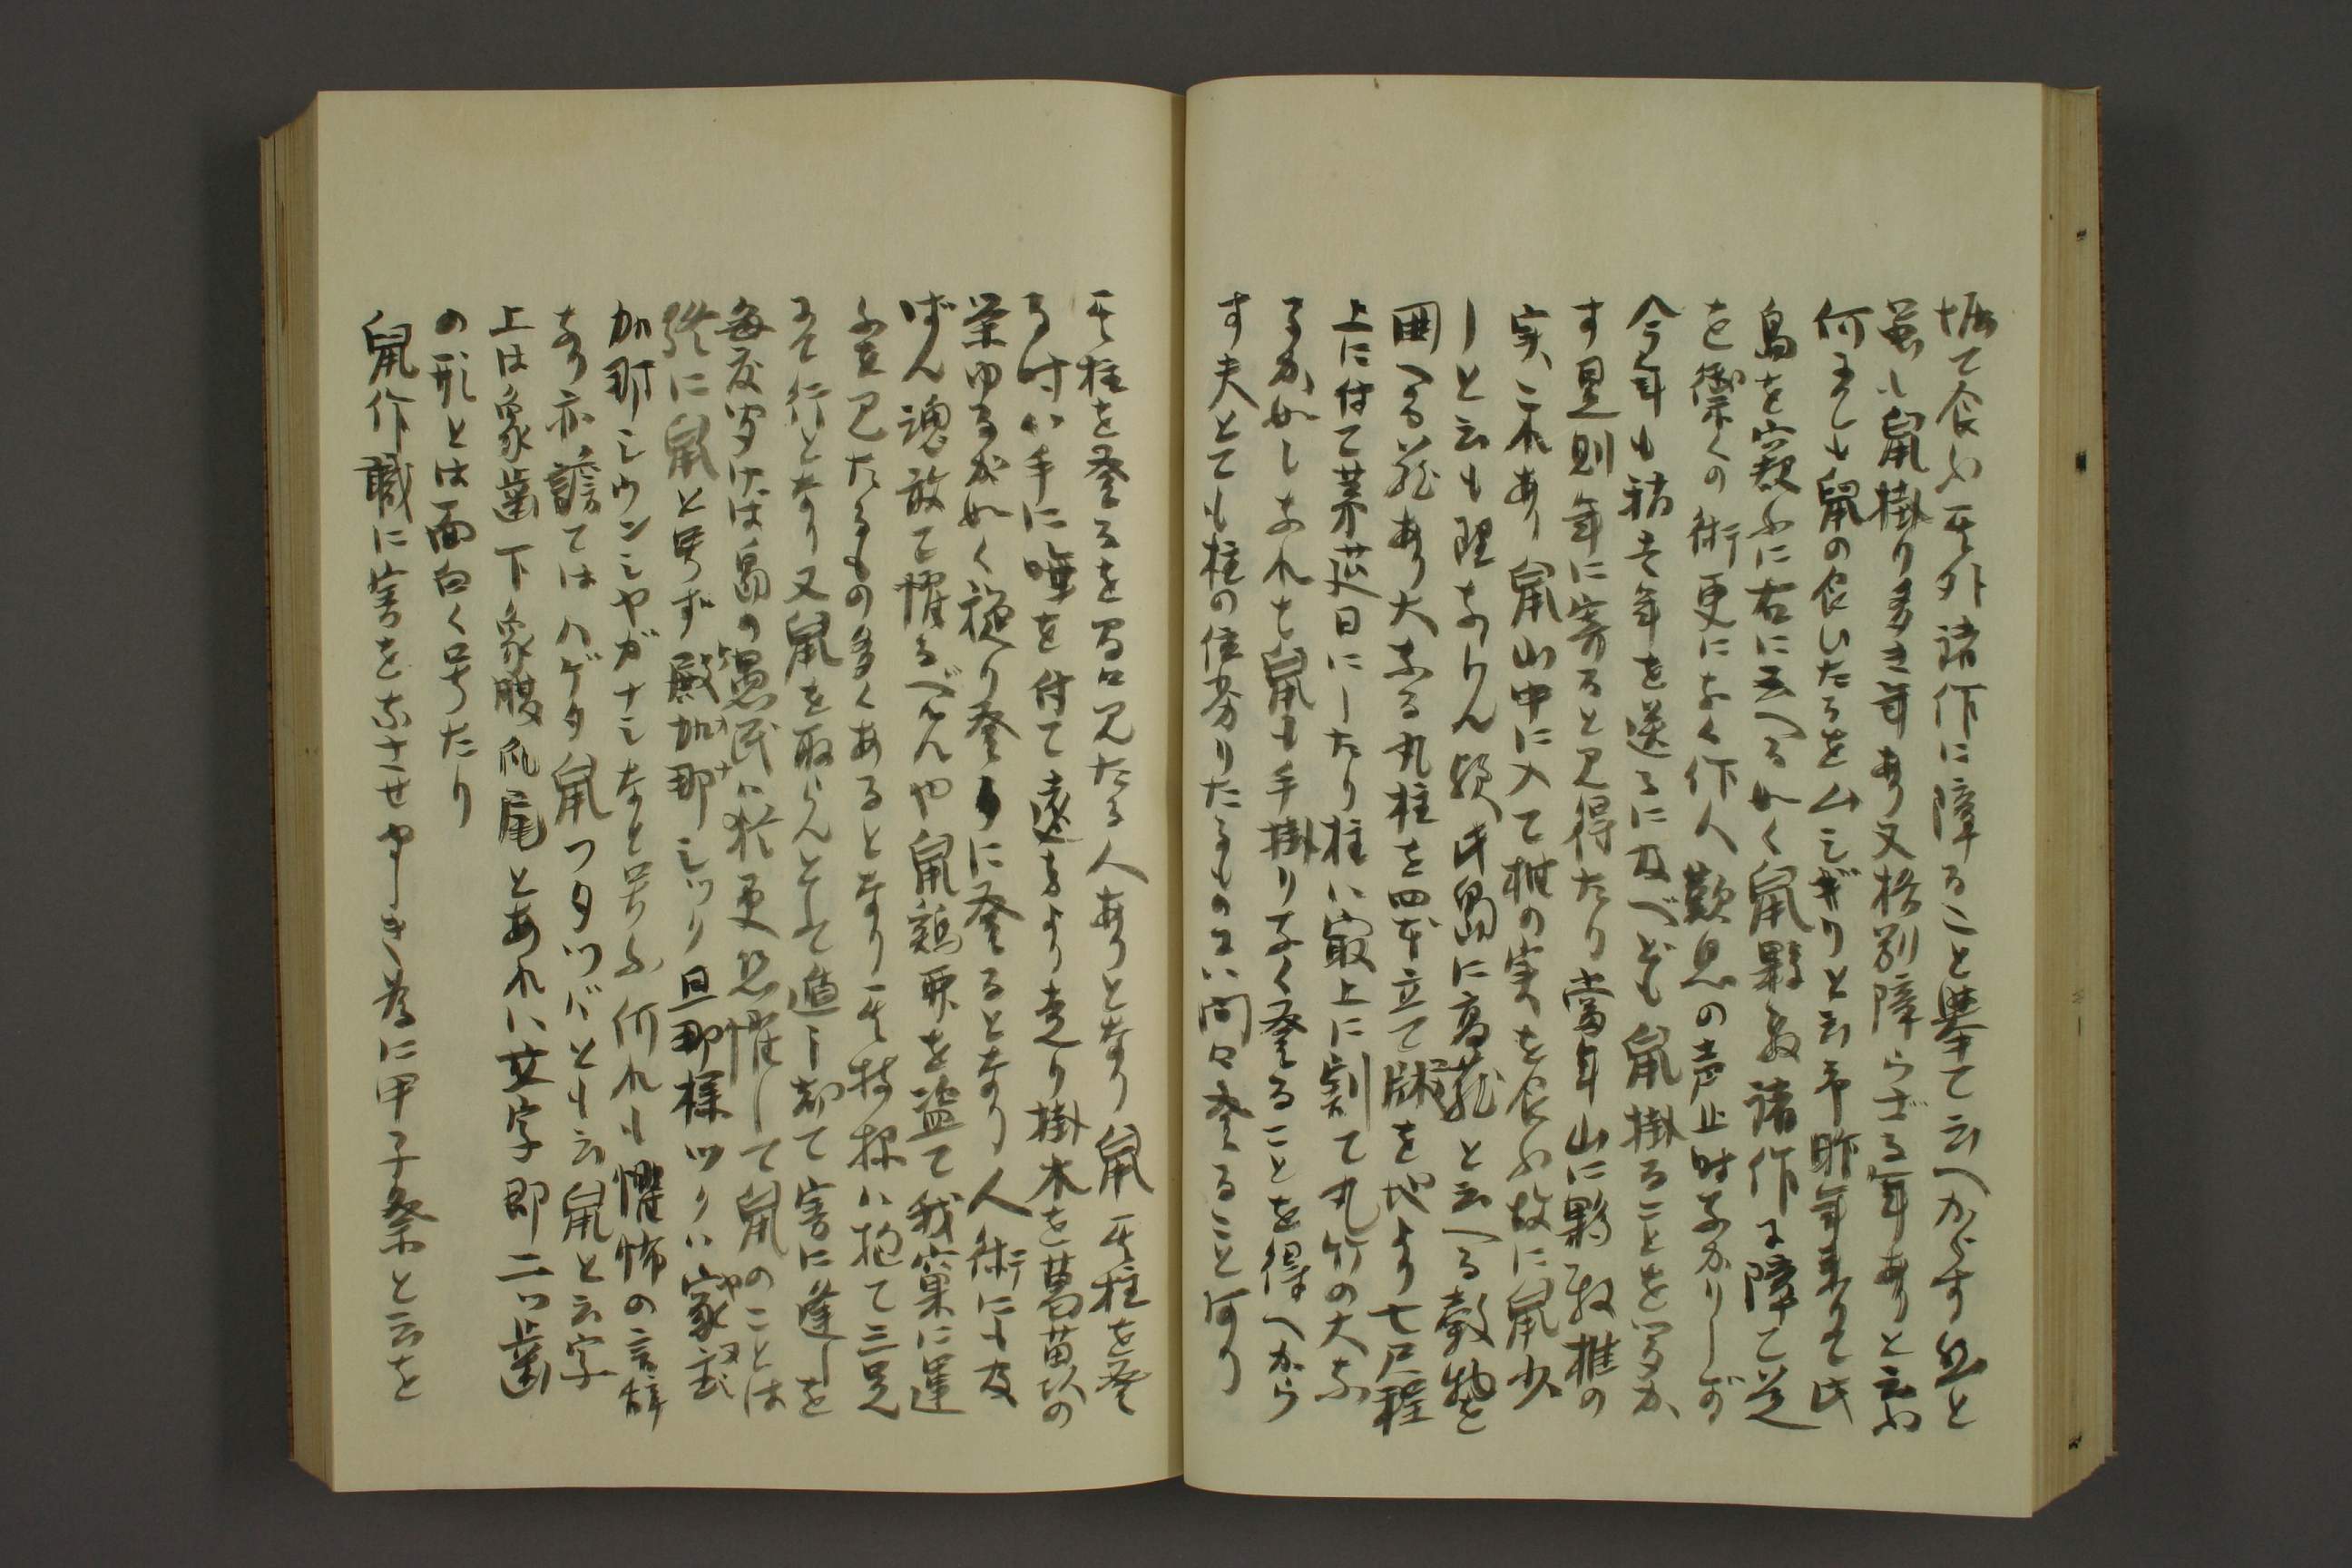 堀て食ふ其外諸作に障ること挙て云へからす然と
虽も鼠掛り多き年あり又格別障らざる年ありと云ふ
何まても鼠の食ひたるを厶シギリと云予昨年来りて此
島を窺ふに右に云へる如く鼠夥敷諸作に障て是
を禦くの術更になく作人歎息の声止時なかりしが
今年も稍半年を送るに及べども鼠掛ることを聞か
す是則年に寄ると見得たり當年山に夥敷椎の
実これあり鼠山中に入て椎の実を食ふ故に鼠少
しと云も理ならん歟此島に高蔵と云へる穀物を
囲へる蔵あり大なる丸柱を四本立て牀を地より七尺程
上に付て葉莚目にしたり柱は最上に割て丸竹の大な
るか如しなれは鼠も手掛りなく登ることを得へから
す夫とても柱の位劣りたるものには間々登ること有り
其柱を登るを間々見たる人ありとなり鼠其柱を登
る時は手に唾を付て遠方より走り掛木を葛苗抔の
栄ゆるが如く縋り登りに登るとなり人術にも及
ばん魂敢て懼るべんや鼠鶏卵を盗て我窠に運
ふを見たるもの多くあると云り其持様は抱て三足
にて行となり又鼠を取らんとして遁し却て害に逢しを
毎度聞けは島の愚民は猶更恐懼して鼠のことは
終に鼠と号ず殿加那シツリ旦那様ツリハ家武
加那シウンシヤガナシなと号ふ何れも懼怖の言辞
なり亦譫てはハゲタ鼠つタツバとも云鼠と云字
上は象歯下象腹爪尾とあれは文字即二ツ歯
の形とは面白く号たり
鼠作職に害をなさせやしき為に甲子祭と云を